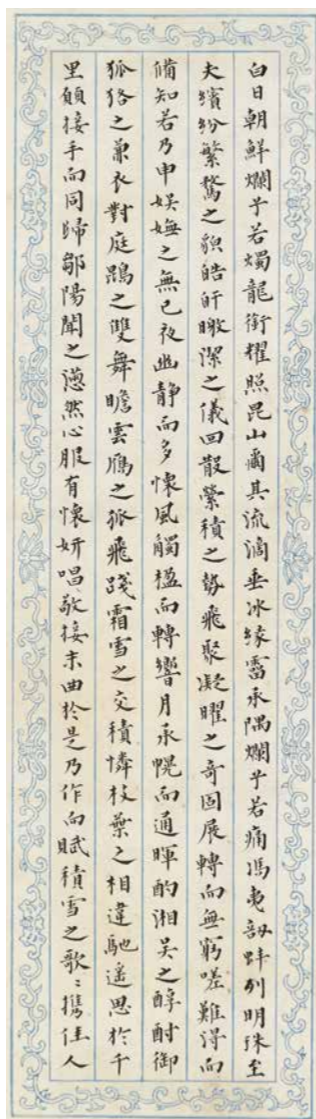 白日朝鮮爛乎若燭龍銜耀照昆山爾其流滴垂冰緣霤承隅爛乎若痛馮夷剖蚌列明珠至
夫繽紛繁騖之貌皓皔曒潔之儀回散縈積之勢飛聚凝曜之奇固展轉而無窮嗟難得而
備知若乃申娱嫵之無已夜幽静而多懷風觸楹而轉響月承幌而通暉酌湘吴之醇酎御
狐狢之兼衣對庭鵾之雙舞瞻雲鴈之孤飛踐霜雪之交積憐枝葉之相違馳遥思於千
里願接手而同歸鄒陽聞之懣然心服有懷妍唱敬接末曲於是乃作而賦積雪之歌〻攜佳人